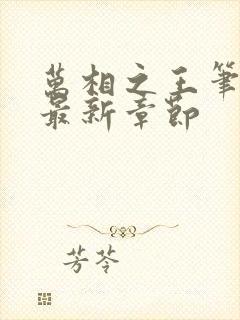 萬相之王筆
最新章節
芳苓